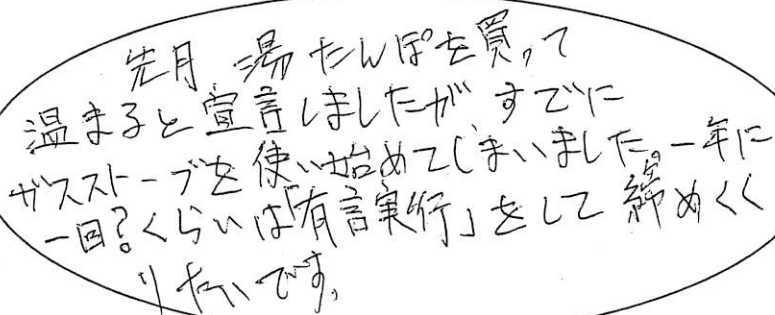 先月 湯たんぽを買って
温まると宣言しましたが すでに
ガスストーブを使い始めてしまいました。一年に
一回?くらいは「有言実行」をして 締めくく
りたいです。